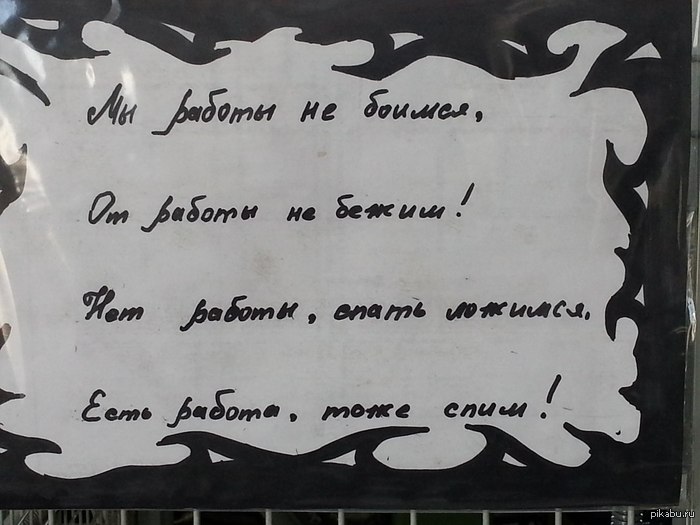 Мы работы не боимся,
От работы не бежим!
Нет работы, спать ложимся.
Есть работа, тоже спим!
pikabu.ru